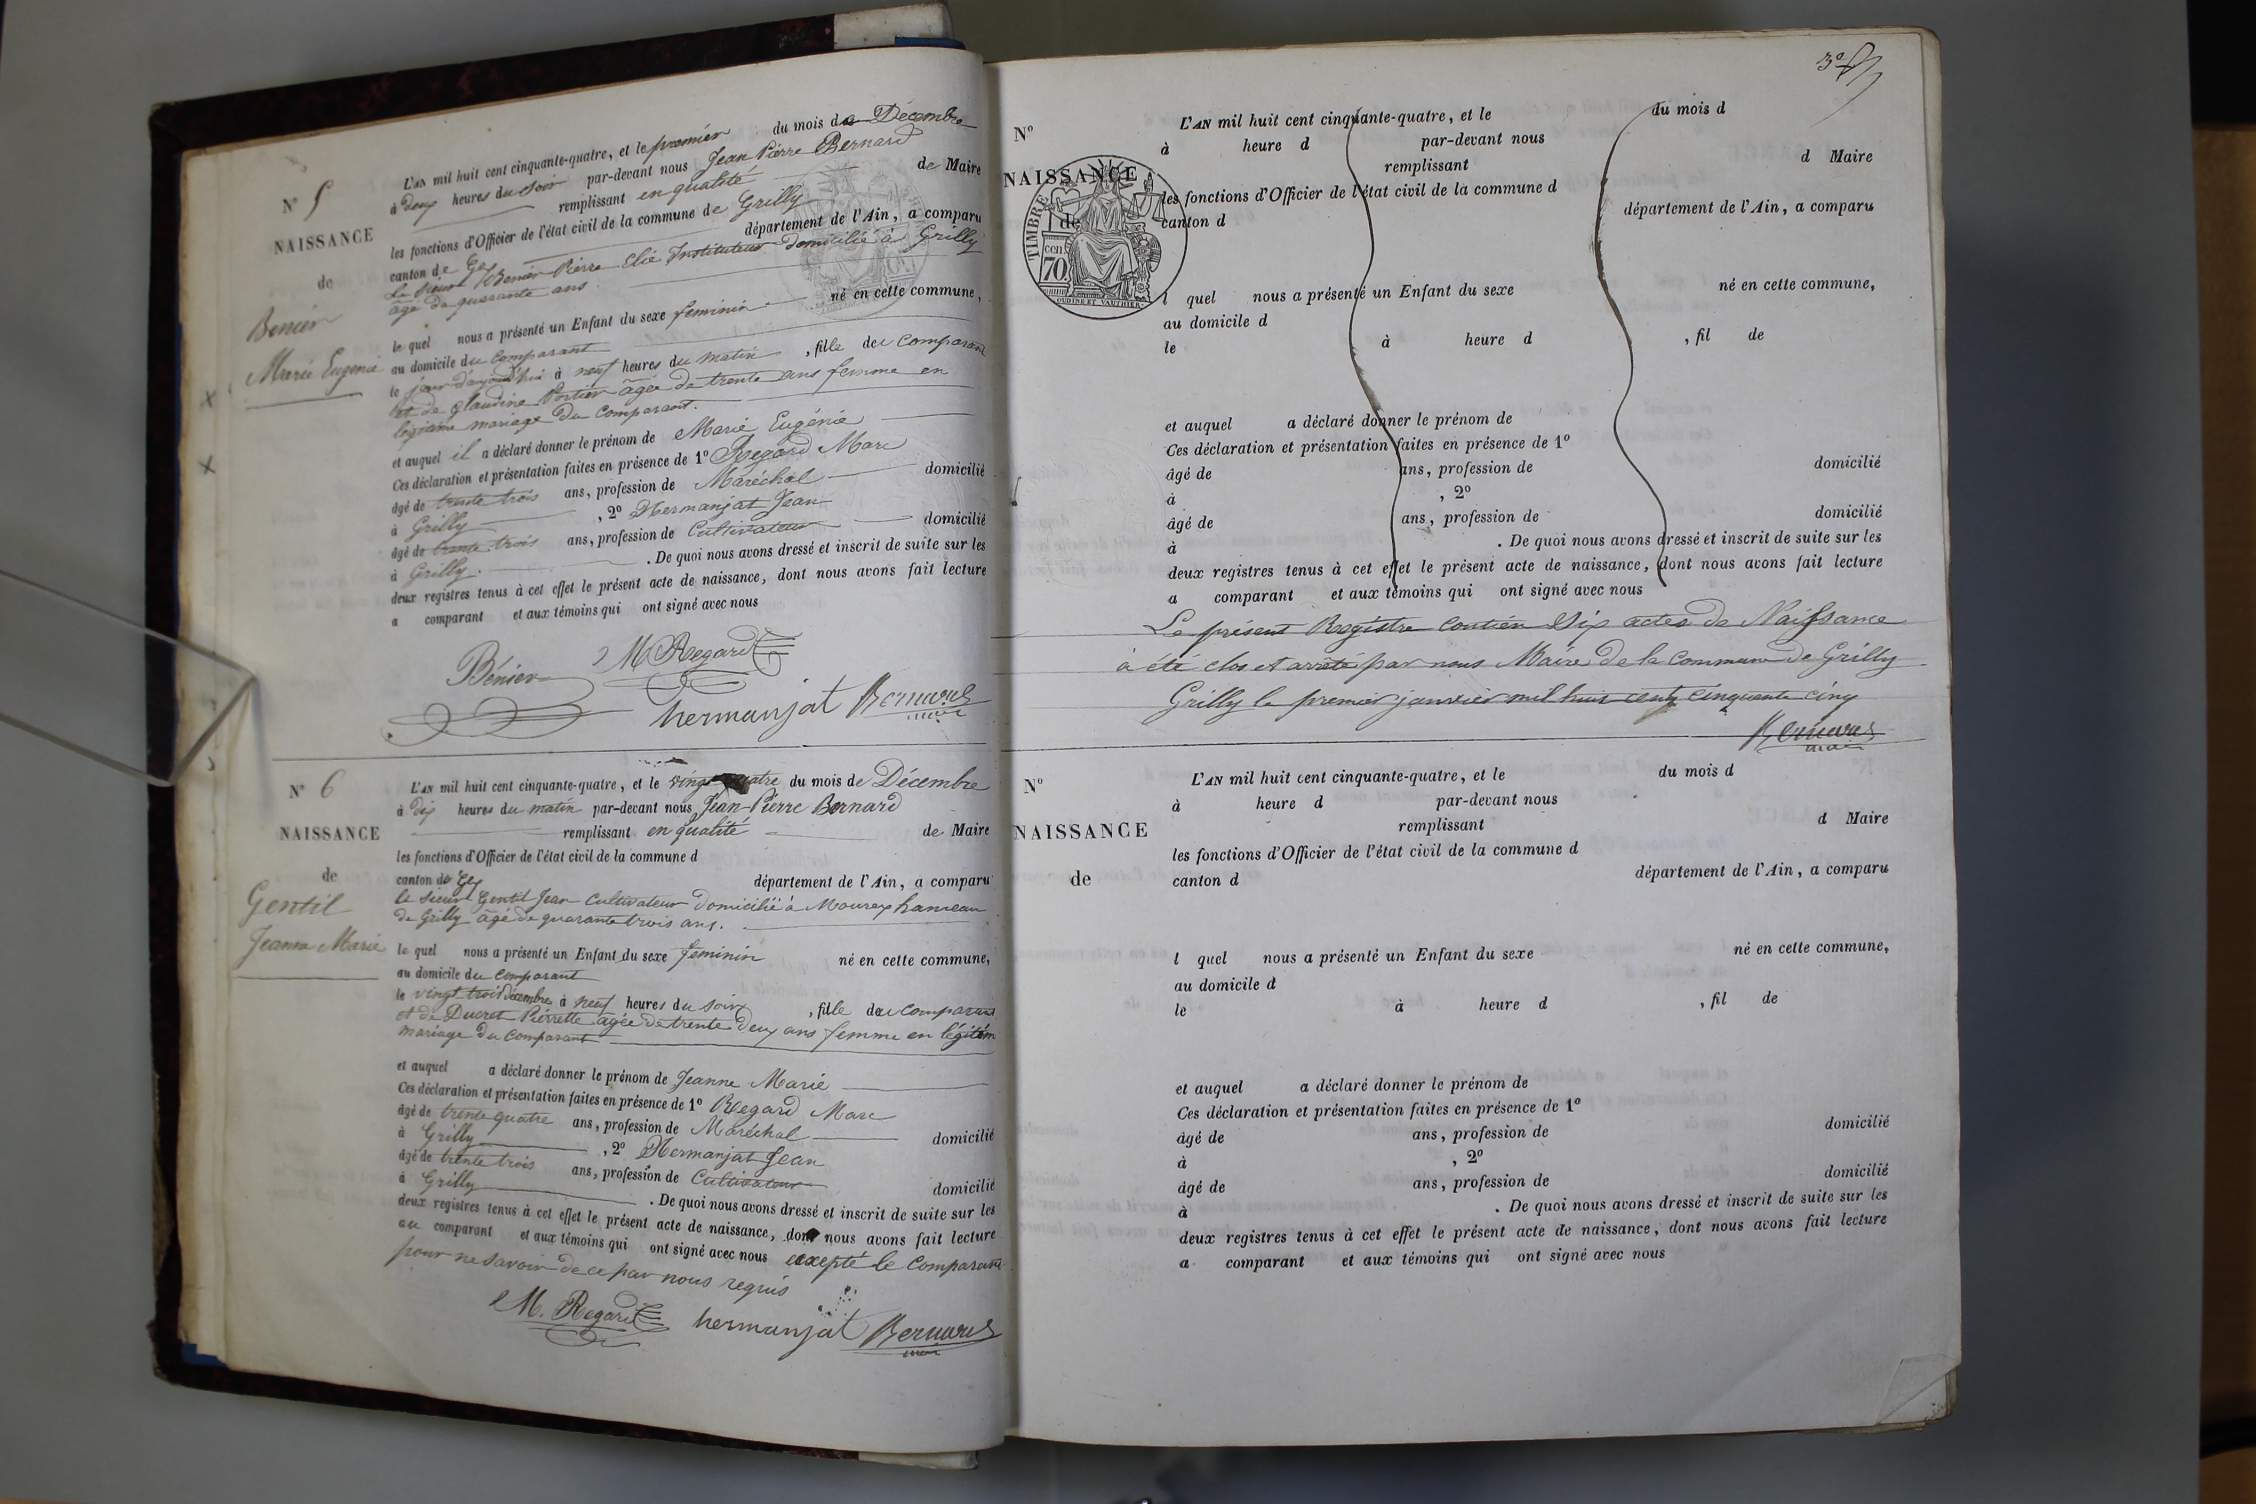 N° 5
NAISSANCE
de
Benier
Marie Eugenie
L'AN mil huit cent cinquante-quatre, et le premier du mois de Décembre
à deux heures du soir par-devant nous Jean Pierre Bernard
remplissant en qualité de Maire
les fonctions d'Officier de l'état civil de la commune de Grilly
canton de Gex département de l'Ain, a comparu
Le sieur Benier Pierre Elie Instituteur domicilié à Grilly
âgé de quarante ans
le quel nous a présenté un Enfant du sexe feminin né en cette commune,
au domicile du comparant
le jour d'aujourd'hui à neuf heures du matin, fille du comparant
et de Glaudine Portier âgée de trente ans femme en
légitime mariage du comparant.
et auquel il a déclaré donner le prénom de Marie Eugénie
Ces déclaration et présentation faites en présence de 1° Regard Marc
âgé de trente trois ans, profession de Maréchal domicilié
à Grilly, 2° Hermanjat Jean
âgé de trente trois ans, profession de Cultivateur domicilié
à Grilly. De quoi nous avons dressé et inscrit de suite sur les
deux registres tenus à cet effet le présent acte de naissance, dont nous avons fait lecture
a comparant et aux témoins qui ont signé avec nous
Bénier M Regard
hermanjat Bernard
maire
N° 6
NAISSANCE
de
Gentil
Jeanne Marie
L'AN mil huit cent cinquante-quatre, et le vingt quatre du mois de Décembre
à dix heures du matin par-devant nous Jean Pierre Bernard
remplissant en qualité de Maire
les fonctions d'Officier de l'état civil de la commune d
canton de Gex département de l'Ain, a comparu
le sieur Gentil Jean Cultivateur domicilié à Mourex hameau
de Grilly âgé de quarante trois ans.
le quel nous a présenté un Enfant du sexe feminin né en cette commune,
au domicile du comparant
le vingt trois décembre à neuf heures du soir, fille du comparant
et de Ducret Pierrette agée de trente deux ans femme en légitime
mariage du comparant
et auquel a déclaré donner le prénom de Jeanne Marie
Ces déclaration et présentation faites en présence de 1° Regard Marc
âgé de trente quatre ans, profession de Maréchal domicilié
à Grilly, 2° Hermanjat Jean
âgé de trente trois ans, profession de Cultivateur domicilié
à Grilly. De quoi nous avons dressé et inscrit de suite sur les
deux registres tenus à cet effet le présent acte de naissance, dont nous avons fait lecture
au comparant et aux témoins qui ont signé avec nous excepté le comparant
pour ne savoir de ce par nous requis
M. Regard hermanjat Bernard
maire
N°
NAISSANCE
de
TIMBRE
cen 70
OUDINE ET VAUTHIER
L'AN mil huit cent cinquante-quatre, et le du mois d
à heure d par-devant nous
remplissant d Maire
les fonctions d'Officier de l'état civil de la commune d
canton d département de l'Ain, a comparu
l quel nous a présenté un Enfant du sexe né en cette commune,
au domicile d
le à heure d, fil de
et auquel a déclaré donner le prénom de
Ces déclaration et présentation faites en présence de 1°
âgé de ans, profession de domicilié
à, 2°
âgé de ans, profession de domicilié
à. De quoi nous avons dressé et inscrit de suite sur les
deux registres tenus à cet effet le présent acte de naissance, dont nous avons fait lecture
a comparant et aux témoins qui ont signé avec nous
Le présent Registre contien Six actes de Naissance
à été clos et arrêté par nous Maire de la Commune de Grilly
Grilly le premier janvier mil huit cent cinquante cinq
Bernard
maire
N°
NAISSANCE
de
L'AN mil huit cent cinquante-quatre, et le du mois d
à heure d par-devant nous
remplissant d Maire
les fonctions d'Officier de l'état civil de la commune d
canton d département de l'Ain, a comparu
l quel nous a présenté un Enfant du sexe né en cette commune,
au domicile d
le à heure d, fil de
et auquel a déclaré donner le prénom de
Ces déclaration et présentation faites en présence de 1°
âgé de ans, profession de domicilié
à, 2°
âgé de ans, profession de domicilié
à. De quoi nous avons dressé et inscrit de suite sur les
deux registres tenus à cet effet le présent acte de naissance, dont nous avons fait lecture
a comparant et aux témoins qui ont signé avec nous